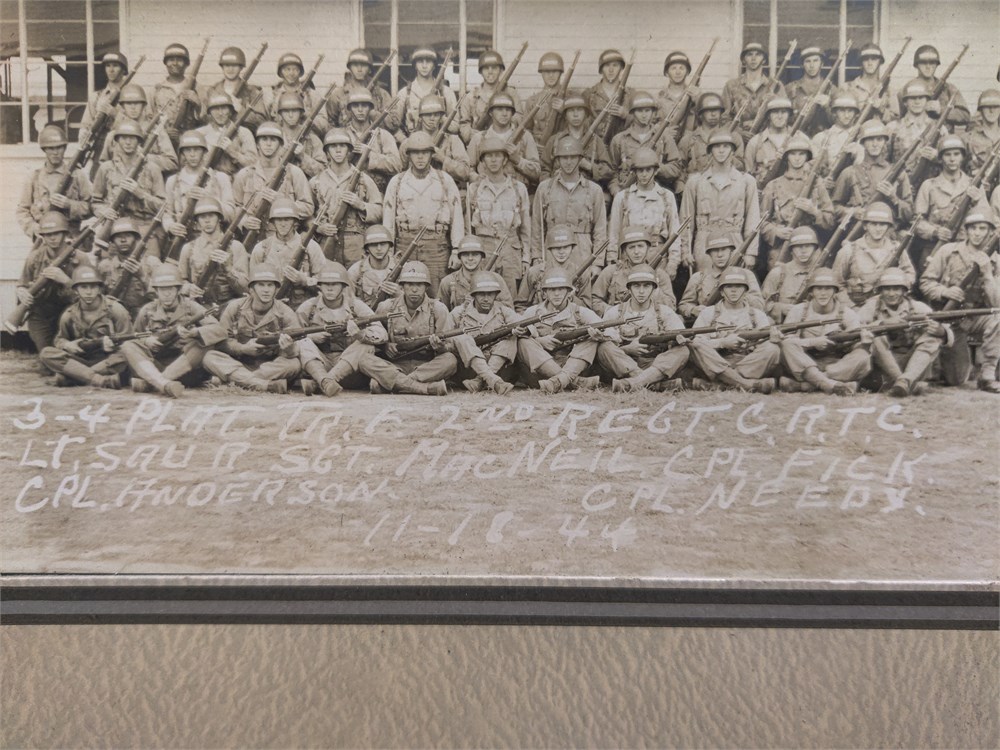 3-4 PLAT. TR. F. 2ND REGT. C.R.T.C.
LT. SAUR SGT. MACNEIL. CPL. FICK.
CPL. ANDERSON. CPL. NEEDY.
11-18-44